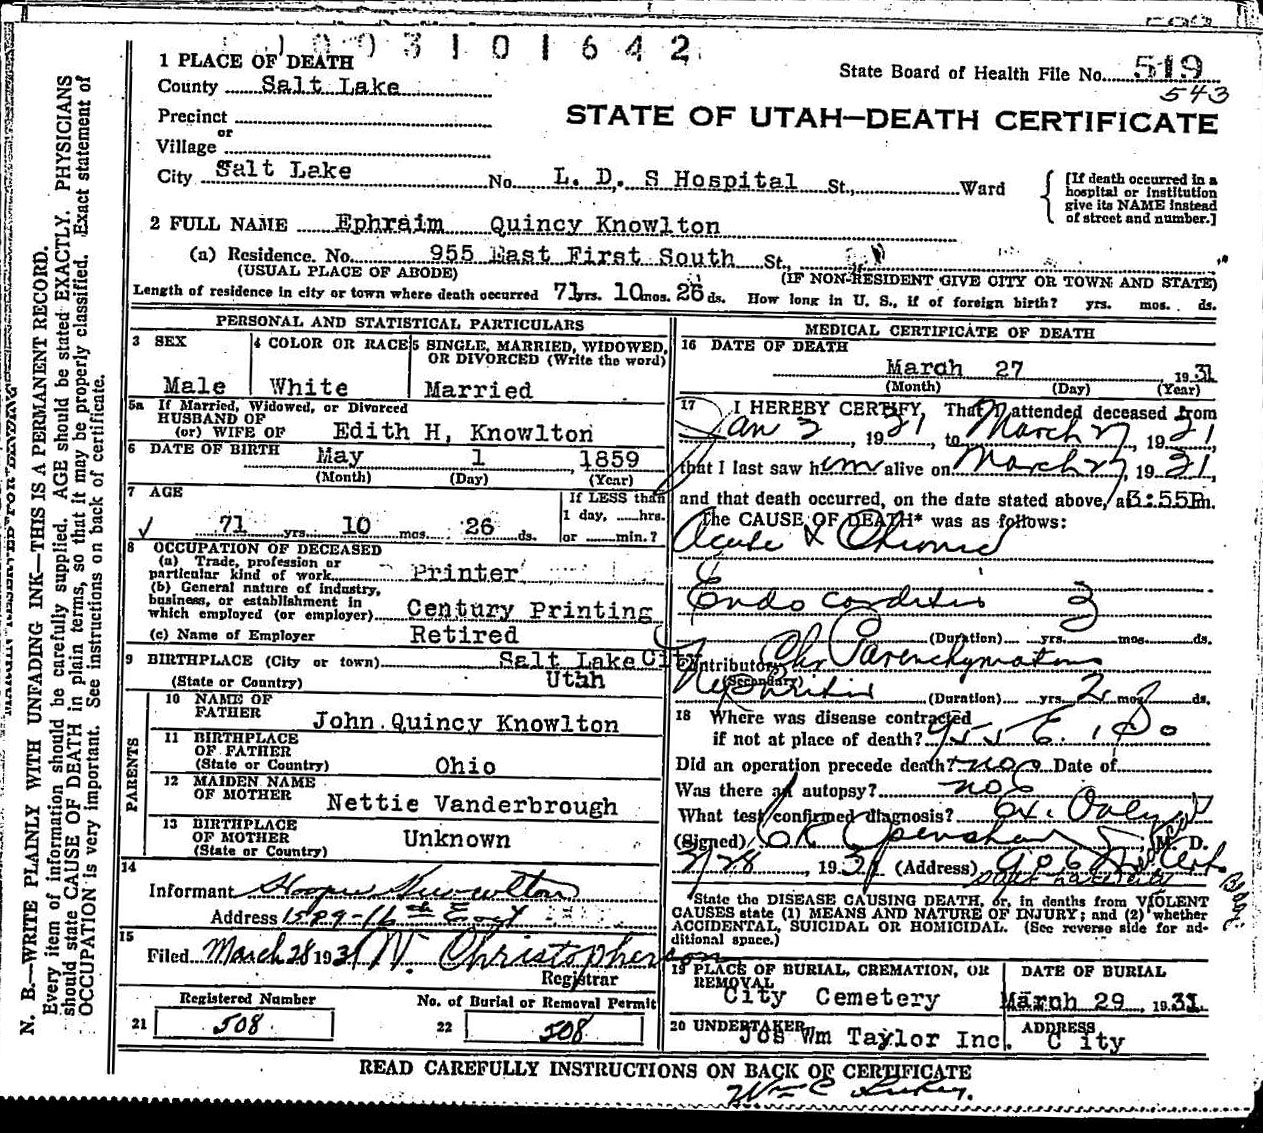 1003101642
1 PLACE OF DEATH
State Board of Health File No. 519
County Salt Lake
543
STATE OF UTAH—DEATH CERTIFICATE
Precinct
or
Village
City Salt Lake No. L. D. S Hospital St., Ward
[If death occurred in a hospital or institution give its NAME instead of street and number.]
2 FULL NAME Ephraim Quincy Knowlton
(a) Residence. No. 955 East First South St.,
(USUAL PLACE OF ABODE) (IF NON-RESIDENT GIVE CITY OR TOWN AND STATE)
Length of residence in city or town where death occurred 71 yrs. 10 mos. 26 ds. How long in U. S., if of foreign birth? yrs. mos. ds.
PERSONAL AND STATISTICAL PARTICULARS
3 SEX 4 COLOR OR RACE 5 SINGLE, MARRIED, WIDOWED,
OR DIVORCED (Write the word)
Male White Married
5a If Married, Widowed, or Divorced
HUSBAND OF
(or) WIFE OF Edith H, Knowlton
6 DATE OF BIRTH May 1 , 1859
(Month) (Day) (Year)
7 AGE
If LESS than
1 day, ......hrs.
71 yrs. 10 mos. 26 ds. or ......min.?
8 OCCUPATION OF DECEASED
(a) Trade, profession or
particular kind of work Printer
(b) General nature of industry,
business, or establishment in
which employed (or employer) Century Printing
(c) Name of Employer Retired
9 BIRTHPLACE (City or town) Salt Lake City
(State or Country) Utah
PARENTS
10 NAME OF
FATHER John Quincy Knowlton
11 BIRTHPLACE
OF FATHER
(State or Country) Ohio
12 MAIDEN NAME
OF MOTHER Nettie Vanderbrough
13 BIRTHPLACE
OF MOTHER
(State or Country) Unknown
14
Informant Knowlton
Address 1529-16th East
15
Filed March 28 1931 N. Christopherson
Registrar
Registered Number No. of Burial or Removal Permit
21 508 22 508
MEDICAL CERTIFICATE OF DEATH
16 DATE OF DEATH
March 27 1931
(Month) (Day) (Year)
17 I HEREBY CERTIFY, That I attended deceased from
Jan 2, 1931, to March 27, 1931
that I last saw him alive on March 27, 1931,
and that death occurred, on the date stated above, at 3:55Pm.
The CAUSE OF DEATH* was as follows:
Acute & Chronic
Endocarditis 3
(Duration) yrs. mos. ds.
Contributory Chr Parenchymatous
(Secondary)
Nephritis (Duration) yrs. 2 mos. ds.
18 Where was disease contracted
if not at place of death? 955 E. 1 So
Did an operation precede death? no Date of
Was there an autopsy? no
What test confirmed diagnosis?
(Signed) Openshaw M. D.
3/28, 1931 (Address) 906
*State the DISEASE CAUSING DEATH, or, in deaths from VIOLENT
CAUSES state (1) MEANS AND NATURE OF INJURY; and (2) whether
ACCIDENTAL, SUICIDAL OR HOMICIDAL. (See reverse side for ad-
ditional space.)
19 PLACE OF BURIAL, CREMATION, OR
REMOVAL DATE OF BURIAL
City Cemetery March 29, 1931
20 UNDERTAKER ADDRESS
Jos Wm Taylor Inc. City
READ CAREFULLY INSTRUCTIONS ON BACK OF CERTIFICATE
Wm C
N. B.—WRITE PLAINLY WITH UNFADING INK—THIS IS A PERMANENT RECORD.
Every item of information should be carefully supplied. AGE should be stated EXACTLY. PHYSICIANS
should state CAUSE OF DEATH in plain terms, so that it may be properly classified. Exact statement of
OCCUPATION is very important. See instructions on back of certificate.